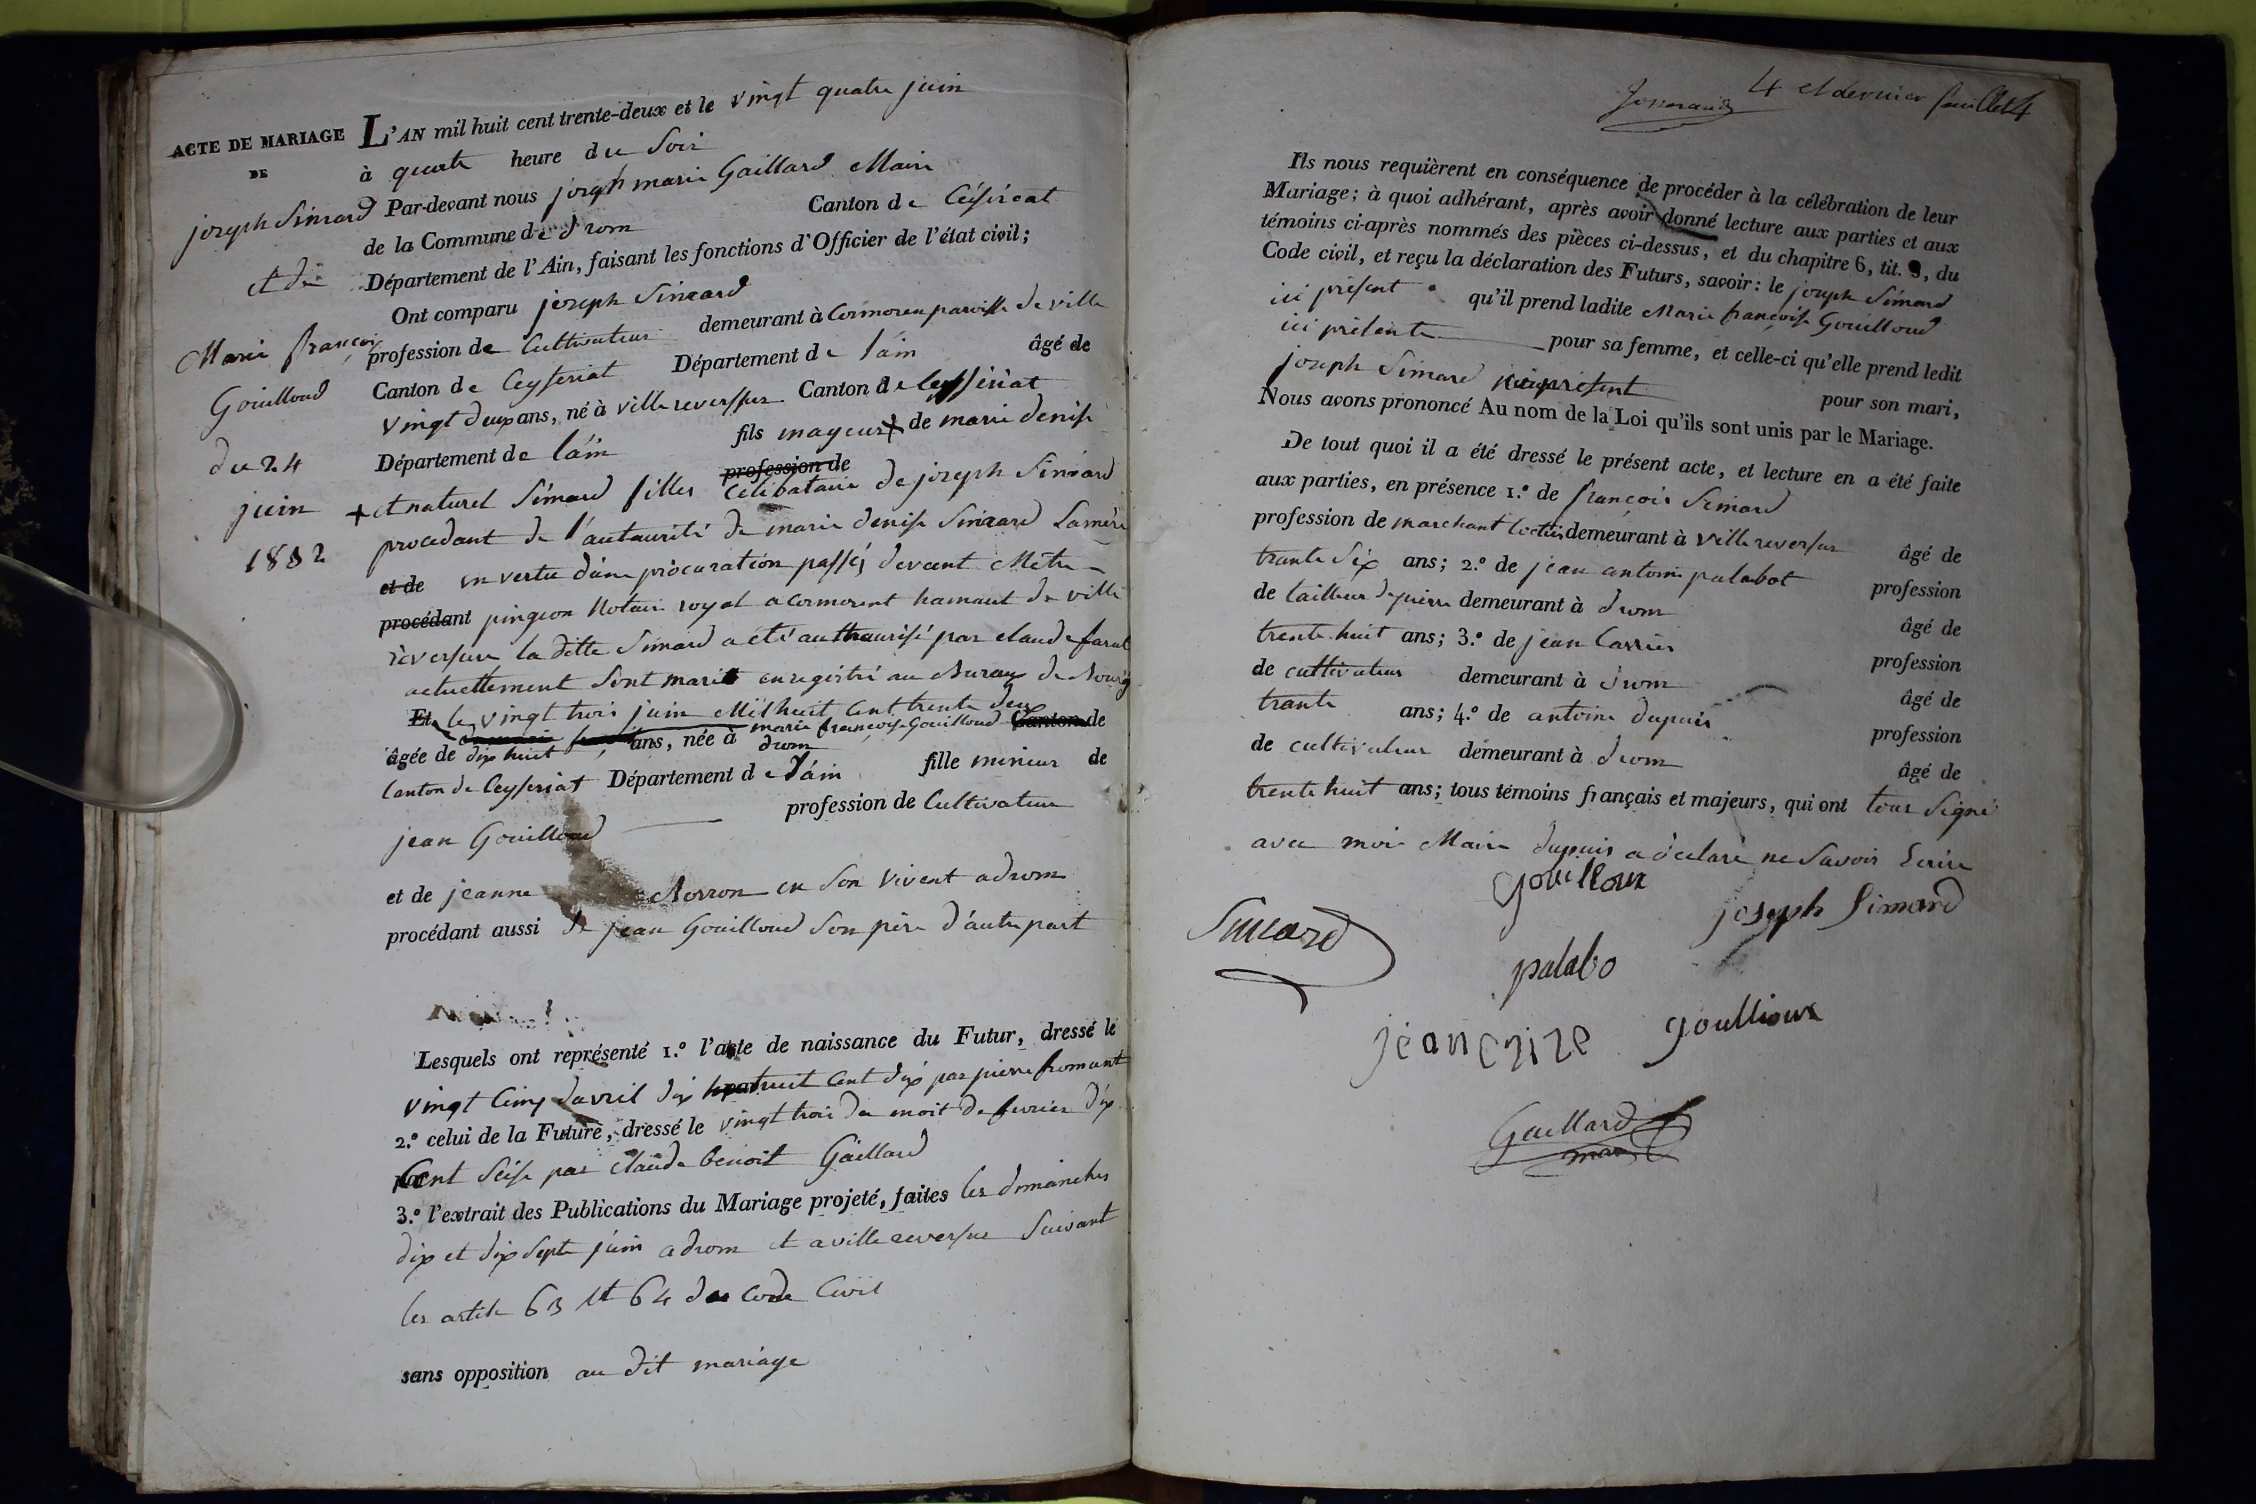 ACTE DE MARIAGE
DE
joseph Simard
et de
Marie françoi
Gouilloud
du 24
juin
1832
L'AN mil huit cent trente-deux et le vingt quatre juin
à quatre heure du Soir
Par-devant nous joseph marie Gaillard Maire
de la Commune de drom Canton de Céséreat
Département de l'Ain, faisant les fonctions d'Officier de l'état civil;
Ont comparu joseph Simard
profession de Cultivateur demeurant à Cormoreu paroisse de ville
Canton de Ceyseriat Département de l'áin âgé de
vingt deux ans, né à villereversur Canton de Ceysseriat
Département de l'áin fils mayeur + de marie denise
profession de
+ et naturel Simard filles Célibataire de joseph Simard
procedant de l'autaurité de marie denise Simard Samère
et de en vertu d'une procuration passés devant Metre
procédant pingeon Notaire royal a cormorent hamaut de ville
reversure la ditte Simard a été authaurisé par claude farat
actuellement Sont marit enregistré au Bureau de Bourg
Et le vingt trois juin Mil huit Cent trente deux
marie françoise Gouilloud Canton de
âgée de dix huit ans, née à drom
Canton de Ceyseriat Département de l'áin fille mineur de
jean Gouilloud profession de Cultivateur
et de jeanne Morron en Son vivent a drom
procédant aussi de jean Gouilloud Son père d'autre part
Lesquels ont représenté 1.º l'acte de naissance du Futur, dressé le
vingt Cinq davril dix huit Cent dix par pierre fromant
2.º celui de la Future, dressé le vingt trois du moit de fevrier dix
Cent Seise par Claude benoit Gaillard
3.º l'extrait des Publications du Mariage projeté, faites les dimanches
dix et dix Septe juin a drom et a villereversur Suivant
les artcle 63 et 64 du Code Civil
sans opposition au dit mariage
4 et dernier feuillet 4
Ils nous requièrent en conséquence de procéder à la célébration de leur
Mariage; à quoi adhérant, après avoir donné lecture aux parties et aux
témoins ci-après nommés des pièces ci-dessus, et du chapitre 6, tit. 5, du
Code civil, et reçu la déclaration des Futurs, savoir: le joseph Simard
ici présent qu'il prend ladite Marie françoise Gouilloud
ici présente pour sa femme, et celle-ci qu'elle prend ledit
joseph Simard ici présent pour son mari,
Nous avons prononcé Au nom de la Loi qu'ils sont unis par le Mariage.
De tout quoi il a été dressé le présent acte, et lecture en a été faite
aux parties, en présence 1.º de françois Simard
profession de marchant demeurant à villereversur âgé de
trante Six ans; 2.º de jean antoine palabot profession
de tailleur de pierre demeurant à drom âgé de
trente huit ans; 3.º de jean Carrier profession
de cultivateur demeurant à drom âgé de
trante ans; 4.º de antoine dupuis profession
de cultivateur demeurant à drom âgé de
trente huit ans; tous témoins français et majeurs, qui ont tous Signé
avec moi Maire dupuis a déclaré ne Savoir Ecrire
Gouilloux
joseph Simard
Simard
palabo
goullioux
Gaillard
maire